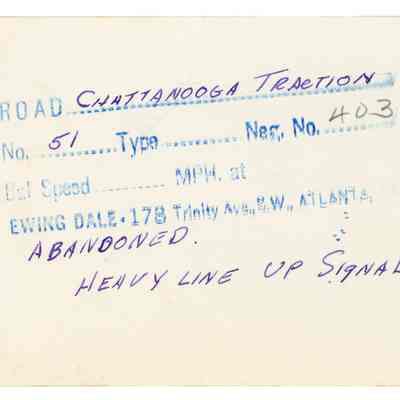 ROAD CHATTANOOGA TRACTION
No. 51 Type Neg. No. 403
Del Speed MPH. at
EWING DALE • 178 Trinity Ave., S.W., ATLANTA,
ABANDONED.
HEAVY LINE UP SIGNAL